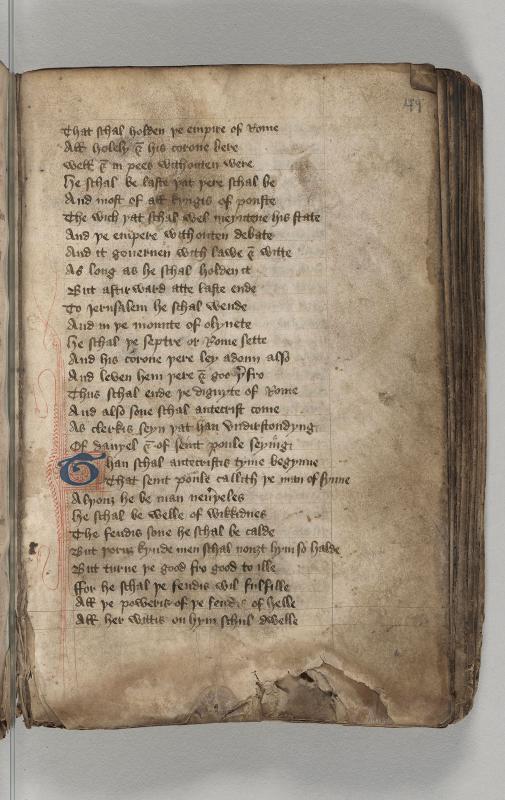 49
That schal holden þe empire of Rome
All holely & his corone bere
Well & in pees withouten were
He schal be laste þat þere schal be
And most of all kyngis of pouste
The wich þat schal wel meyntene his state
And þe empere withouten debate
And it governen with lawe & witte
As long as he schal holden it
But aftirward atte laste ende
To Jerusalem he schal wende
And in þe mounte of olyuete
He schal þe septre of Rome sette
And his corone þere ley adoun also
And leven hem þere & goo þ fro
Thus schal ende þe dignyte of Rome
And also sone schal antecrist come
As clerkis seyn þat han vndirstondyng
Of danyel & of seint poule seying
Than schal antecristis tyme begynne
That seint poule callith þe man of synne
Alþouȝ he be man neuerþeles
He schal be welle of wikkidnes
The fendis sone he schal be calde
But þoruȝ kynde men schal nouȝt hym so halde
But turne þe good fro good to ille
ffor he schal þe fendis wil fulfille
All þe poweris of þe fendis of helle
All her wittis on hym schul dwelle